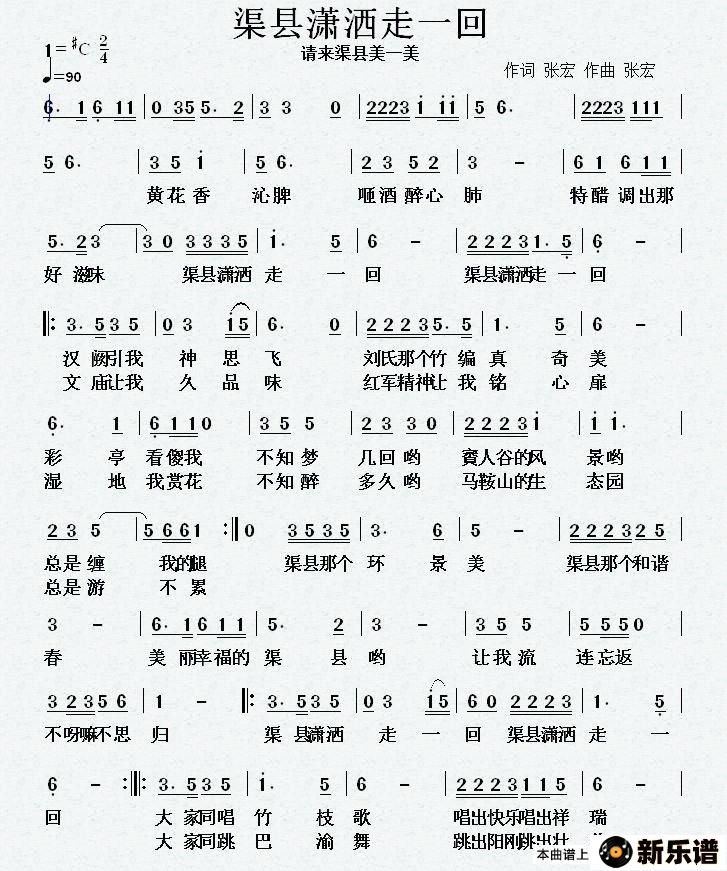 渠县潇洒走一回
请来渠县美一美
1=♯C 2/4
♩=90
作词 张宏 作曲 张宏
6. 1 6 1 1 | 0 3 5 5. 2 | 3 3 0 | 2 2 2 3 i i i | 5 6. | 2 2 2 3 1 1 1 |
5 6. | 3 5 i | 5 6. | 2 3 5 2 | 3 - | 6 1 6 1 1 |
黄花香 沁脾 咂酒醉心 肺 特醋调出那
5. 2 3 | 3 0 3 3 3 5 | 1. 5 | 6 - | 2 2 2 3 1. 5 | 6 - |
好滋味 渠县潇洒 走 一 回 渠县潇洒走一回
|: 3. 5 3 5 | 0 3 i 5 | 6. 0 | 2 2 2 3 5. 5 | 1. 5 | 6 - |
汉阙引我 神思飞 刘氏那个竹编真 奇 美
文庙让我 久品味 红军精神让我铭 心 扉
6. 1 | 6 1 1 0 | 3 5 5 | 2 3 3 0 | 2 2 2 3 i | i i. |
彩 亭 看傻我 不知梦 几回哟 賨人谷的风 景哟
湿 地 我赏花 不知醉 多久哟 马鞍山的生 态园
2 3 5 | 5 6 6 1 :| 0 3 5 3 5 | 3. 6 | 5 - | 2 2 2 3 2 5 |
总是缠 我的腿 渠县那个 环 景 美 渠县那个和谐
总是游 不累
3 - | 6. 1 6 1 1 | 5. 2 | 3 - | 2 3 5 | 5 5 5 0 |
春 美丽幸福的 渠 县 哟 让我流 连忘返
3 2 3 5 6 | 1 - |: 3. 5 3 5 | 0 3 i 5 | 6 0 2 2 2 3 | 1. 5 |
不呀嘛不思 归 渠县潇洒 走一回 渠县潇洒 走 一
6 - :|: 3. 5 3 5 | i. 5 | 6 - | 2 2 2 3 1 1 5 | 5 5. |
回 大家同唱 竹 枝 歌 唱出快乐唱出祥 瑞
大家同跳 巴 渝 舞 跳出阳刚跳出
本曲谱上
新乐谱